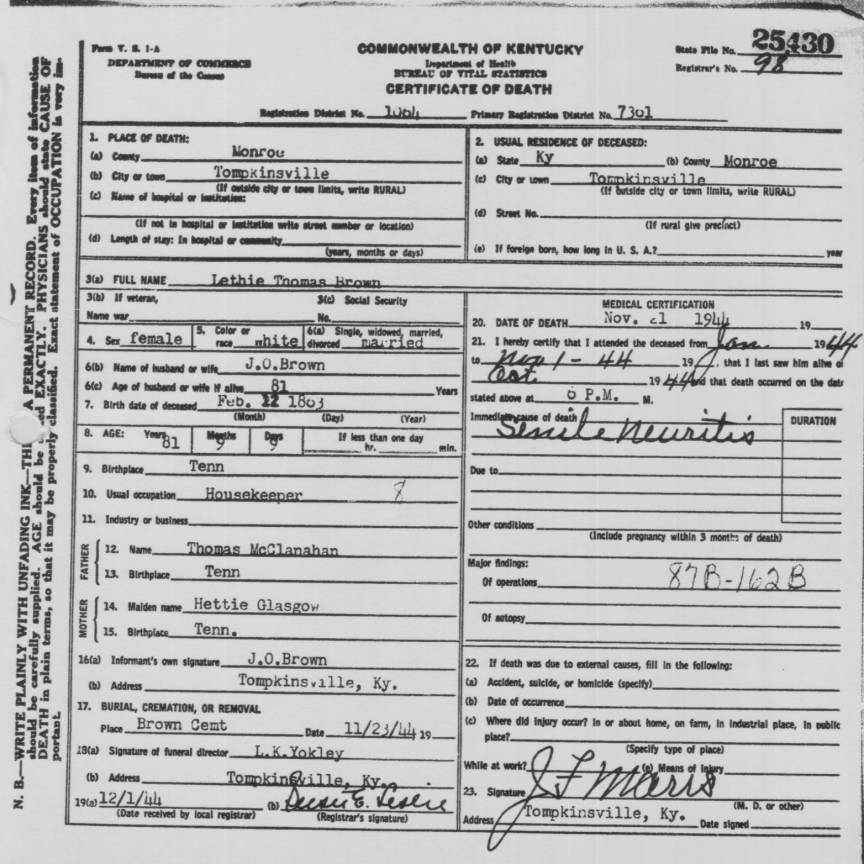 Form V. S. 1-A
DEPARTMENT OF COMMERCE
Bureau of the Census
COMMONWEALTH OF KENTUCKY
Department of Health
BUREAU OF VITAL STATISTICS
CERTIFICATE OF DEATH
State File No. 25430
Registrar's No. 98
Registration District No. 1064 Primary Registration District No. 7301
1. PLACE OF DEATH:
(a) County Monroe
(b) City or town Tompkinsville
(If outside city or town limits, write RURAL)
(c) Name of hospital or institution:
(If not in hospital or institution write street number or location)
(d) Length of stay: In hospital or community
(years, months or days)
2. USUAL RESIDENCE OF DECEASED:
(a) State Ky (b) County Monroe
(c) City or town Tompkinsville
(If outside city or town limits, write RURAL)
(d) Street No.
(If rural give precinct)
(e) If foreign born, how long in U. S. A.? year
3(a) FULL NAME Lethie Thomas Brown
3(b) If veteran, 3(c) Social Security
Name war No.
4. Sex female 5. Color or race white 6(a) Single, widowed, married, divorced married
6(b) Name of husband or wife J.O.Brown
6(c) Age of husband or wife if alive 81 Years
7. Birth date of deceased Feb. 12 1863
(Month) (Day) (Year)
8. AGE: Years 81 Months 9 Days 9 If less than one day
hr. min.
9. Birthplace Tenn
10. Usual occupation Housekeeper 8
11. Industry or business
FATHER
12. Name Thomas McClanahan
13. Birthplace Tenn
MOTHER
14. Maiden name Hettie Glasgow
15. Birthplace Tenn.
16(a) Informant's own signature J.O.Brown
(b) Address Tompkinsville, Ky.
17. BURIAL, CREMATION, OR REMOVAL
Place Brown Cemt Date 11/23/44 19
18(a) Signature of funeral director L.K.Yokley
(b) Address Tompkinsville, Ky.
19(a) 12/1/44 (b) E. Leslie
(Date received by local registrar) (Registrar's signature)
MEDICAL CERTIFICATION
20. DATE OF DEATH Nov. 21 1944 19
21. I hereby certify that I attended the deceased from Jan 1944
to Nov 1 - 44 19 , that I last saw him alive on
Oct. 1944 and that death occurred on the date
stated above at 6 P.M. M.
Immediate cause of death DURATION
Senile Neuritis
Due to
Other conditions
(Include pregnancy within 3 months of death)
Major findings:
Of operations 87B-162B
Of autopsy
22. If death was due to external causes, fill in the following:
(a) Accident, suicide, or homicide (specify)
(b) Date of occurrence
(c) Where did injury occur? In or about home, on farm, in industrial place, in public
place?
(Specify type of place)
While at work? (e) Means of injury
23. Signature J F Marrs
(M. D. or other)
Address Tompkinsville, Ky. Date signed
N. B.—WRITE PLAINLY WITH UNFADING INK—THIS A PERMANENT RECORD. Every item of information
should be carefully supplied. AGE should be EXACTLY. PHYSICIANS should state CAUSE OF
DEATH in plain terms, so that it may be properly classified. Exact statement of OCCUPATION is very im-
portant.